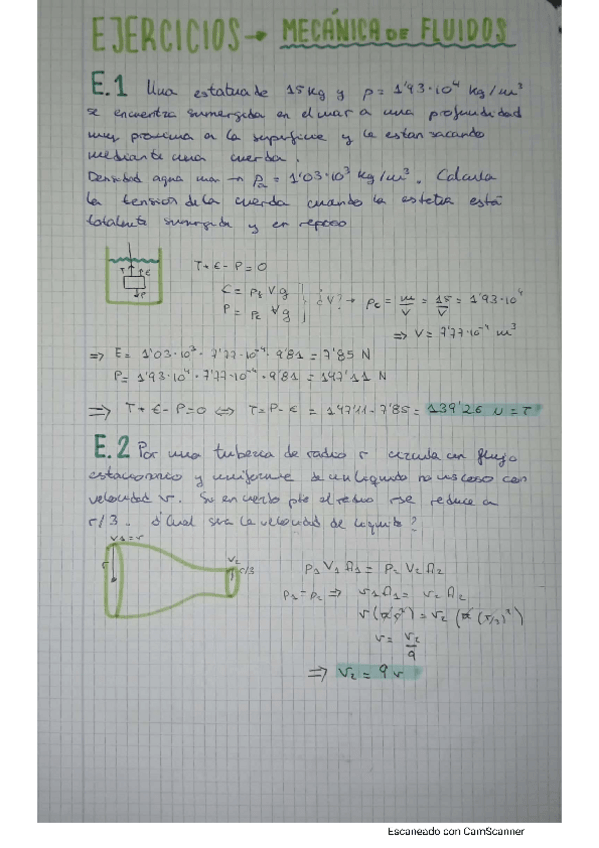 EJERCICIOS → MECÁNICA DE FLUIDOS
E.1 Una estatua de 15 kg y ρ = 1'93·10⁴ kg/m³
se encuentra sumergida en el mar a una profundidad
muy proxima a la superficie y le estan sacando
mediante una cuerda.
Densidad agua mar → ρa = 1'03·10³ kg/m³. Calcula
la tension de la cuerda cuando la estatua está
totalmente sumergida y en reposo
T E
P
T + E - P = 0
E = ρ V g
P = ρc V g
¿V? → ρc = m/V = 15/V = 1'93·10⁴
⇒ V = 7'77·10⁻⁴ m³
⇒ E = 1'03·10³ · 7'77·10⁻⁴ · 9'81 = 7'85 N
P = 1'93·10⁴ · 7'77·10⁻⁴ · 9'81 = 147'11 N
⇒ T + E - P = 0 ⇔ T = P - E = 147'11 - 7'85 = 139'26 N = T
E.2 Por una tubería de radio r circula un flujo
estacionario y uniforme de un liquido no viscoso con
velocidad v. Si en cierto pto el radio r se reduce a
r/3. ¿Cual sera la velocidad de liquido?
V1 = v
r
V2
r/3
ρ1 V1 Ω1 = ρ2 V2 Ω2
ρ1 = ρ2 ⇒ v1 Ω1 = v2 Ω2
v (π r²) = v2 (π (r/3)²)
v = v2/9
⇒ V2 = 9 v
Escaneado con CamScanner